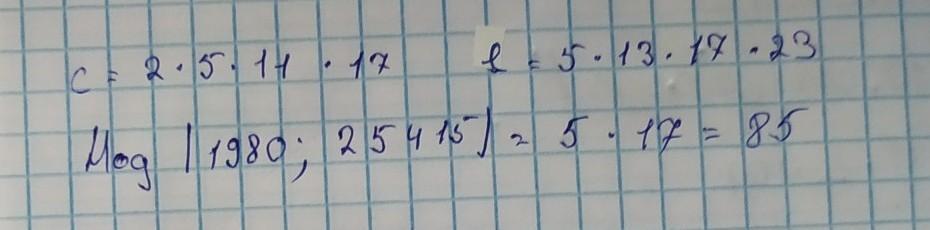 c = 2 · 5 · 11 · 17 b = 5 · 13 · 17 · 23
Нод (1980; 25415) = 5 · 17 = 85